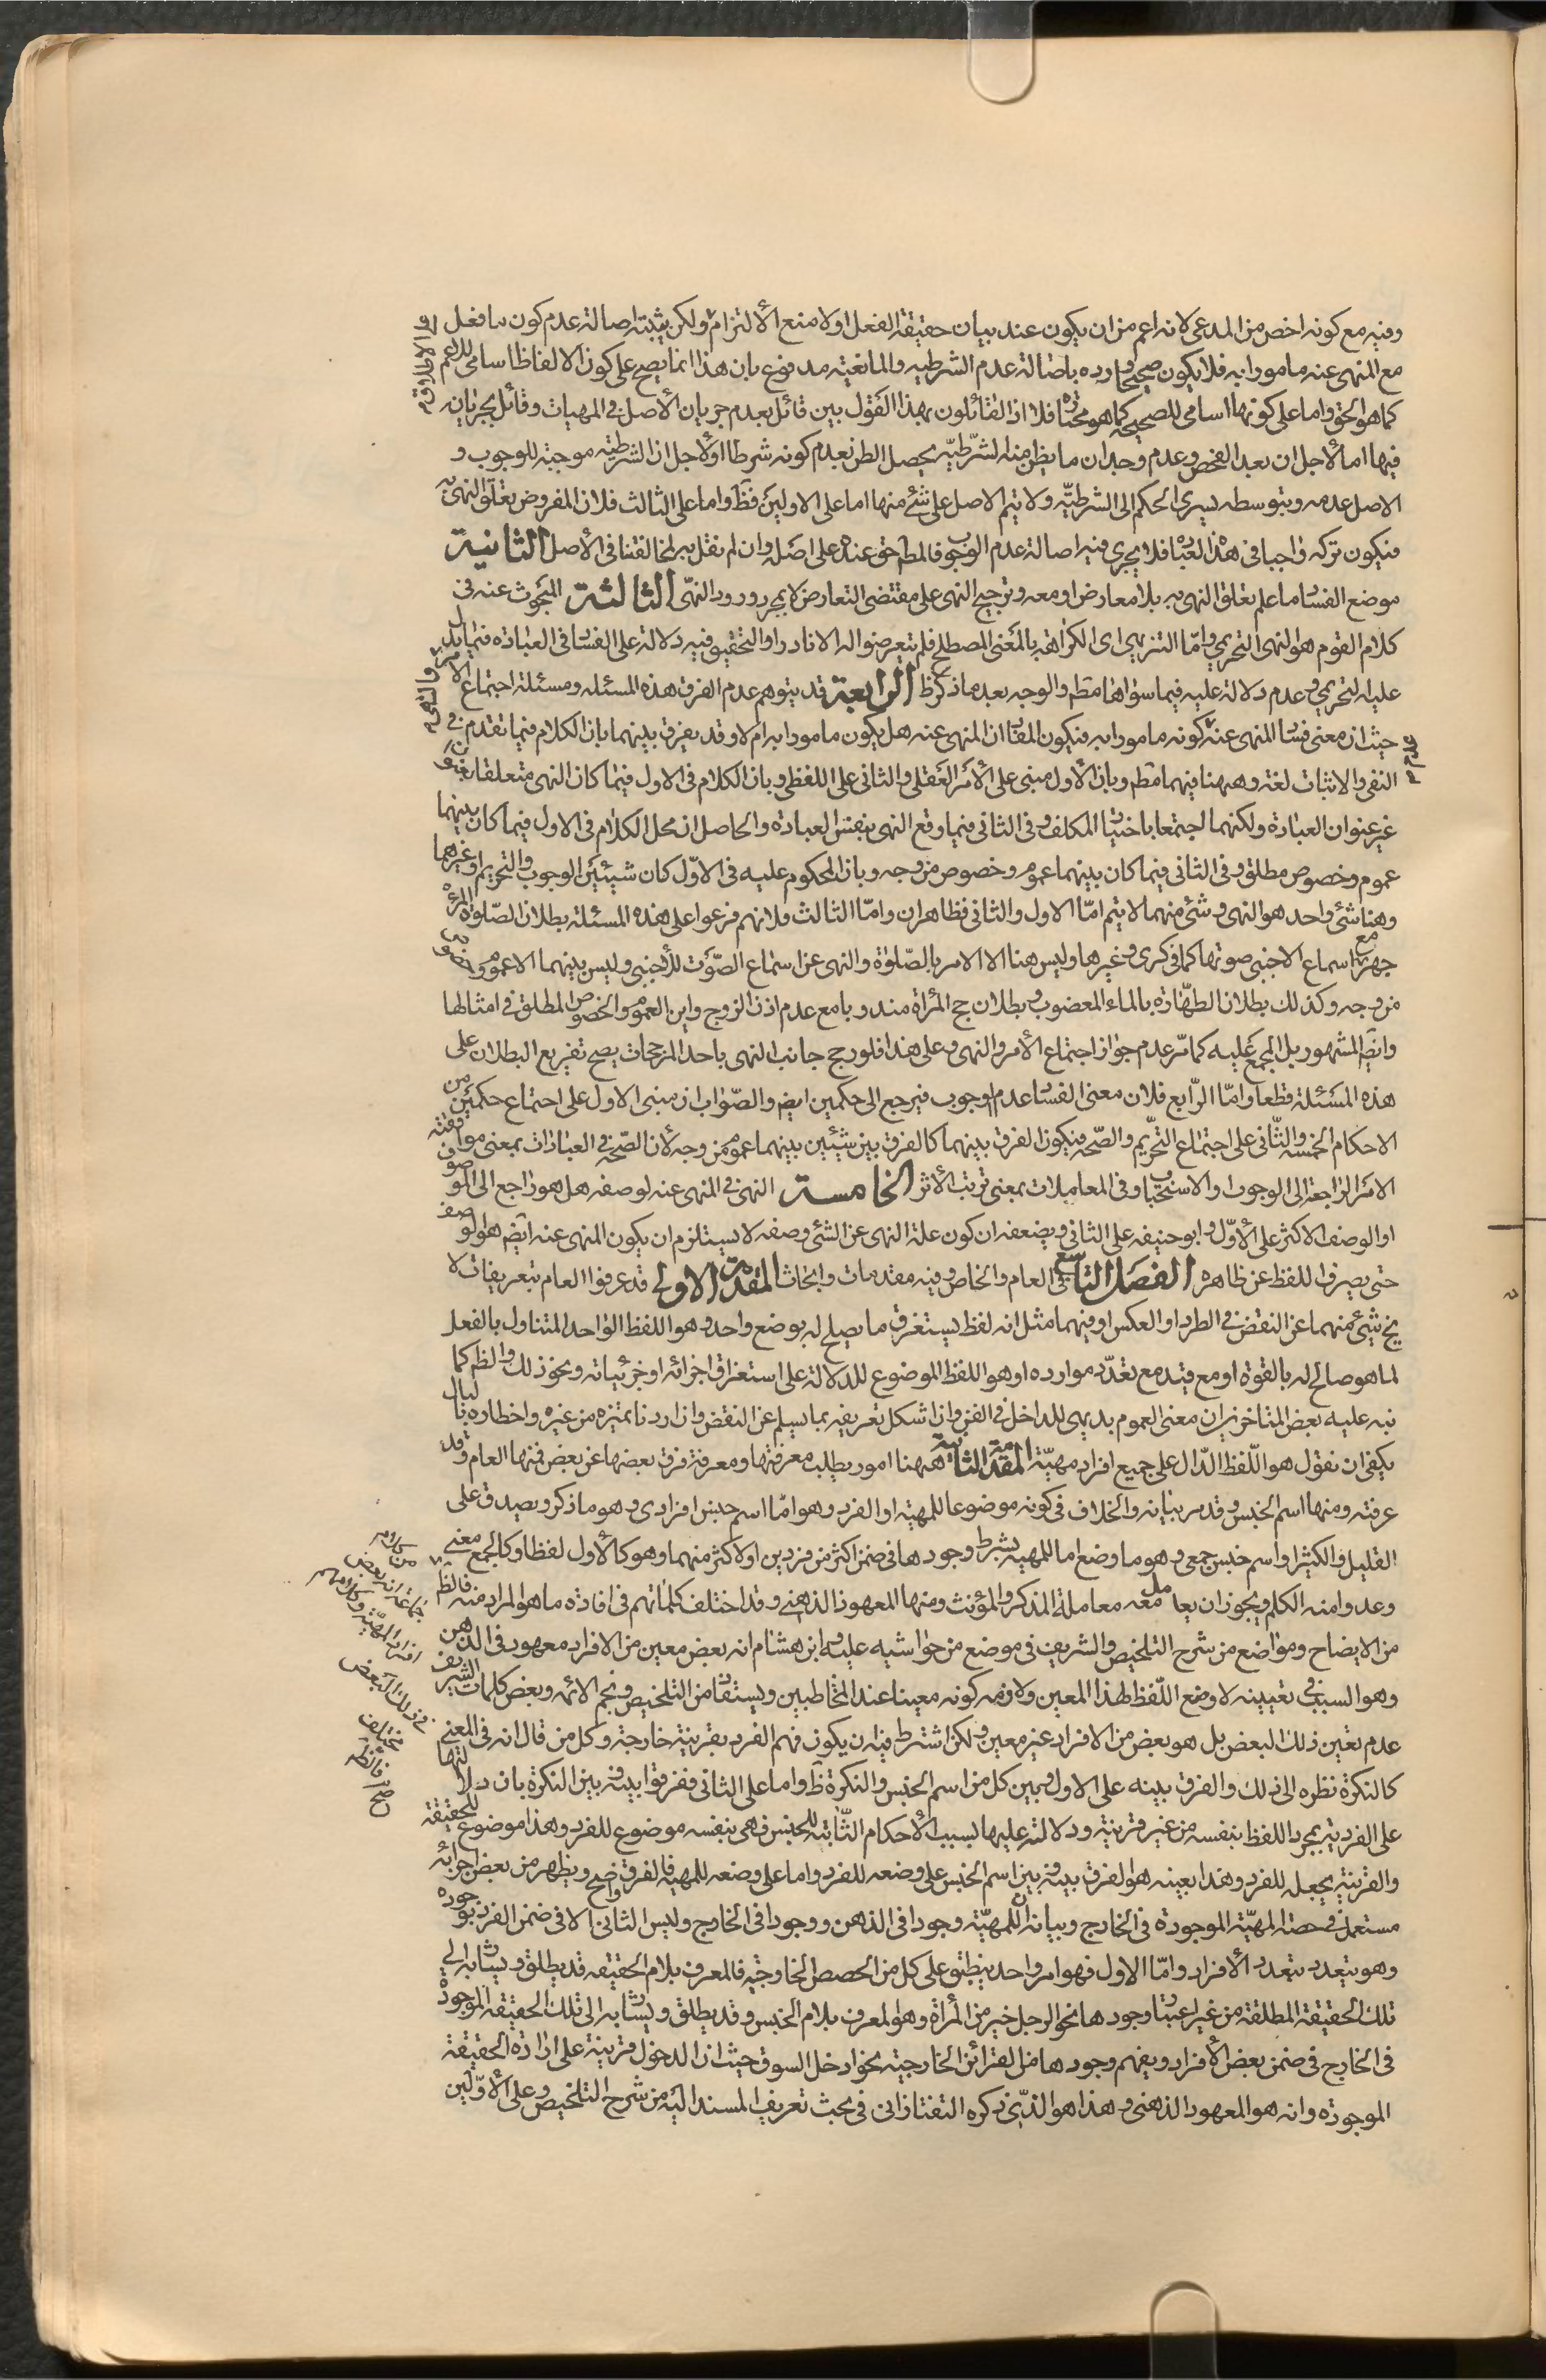 وفيه مع كونه اخص من المدعى لانه اعم من ان يكون عند بيان حقيقة الفعل اولا منع الالتزام ولكن يثبته اصالة عدم كون ما فعل
مع المنهى عنه مامورا به فلا يكون صحيحا ورده باصالة عدم الشرطيه والمانعية مدفوع بان هذا انما يصح على كون الالفاظ اسامى للاعم
كما هو الحق واما على كونها اسامى للصحيح كما هو مختاره فلا اذ القائلون بهذا القول بين قائل بعدم جريان الأصل فى المهيات وقائل بجريانه
فيها اما لأجل ان بعد الفحص وعدم وجدان ما يظن منه الشرطيّه يحصل الظن بعدم كونه شرطا او لأجل ان الشرطيه موجبة للوجوب و
الاصل عدمه وبتوسطه يسرى الحكم الى الشرطيّه ولا يتم الاصل على شئ منها اما على الاولين فظ واما على الثالث فلان المفروض تعلق النهى به
فيكون تركه واجبا فى هذا العبا فلا يجرى فيه اصالة عدم الوجوب فالمط حق عنده على اصله وان لم نقل به لمخالفتنا فى الأصل الثانية
موضع الفسا ما علم تعلق النهى به بلا معارض او معه وترجيح النهى على مقتضى التعارض لا بمجرد ورود النهى الثالثة المبحوث عنه فى
كلام القوم هو النهى التحريمى وامّا التنزيهى اى الكراهة بالمعنى المصطلح فلم يتعرضوا له الا نادرا والتحقيق فيه دلالة على الفسا فى العبادة فيما يدل
عليه التحريمى وعدم دلالة عليه فيما سواها مط والوجه بعد ما ذكر ظ الرابعة قد يتوهم عدم الفرق هذه المسئله ومسئلة اجتماع الامر والنهى
حيث ان معنى فسا المنهى عنه كونه مامورا به فيكون المقا ان المنهى عنه هل يكون مامورا به ام لا وقد يفرق بينهما بان الكلام فيما تقدم فى
النفى والاثبات لغة وههنا فيهما مط وبان الأول مبنى على الأمر العقلى والثانى على اللفظى وبان الكلام فى الاول فيما كان النهى متعلقا بعنوان
غير عنوان العبادة ولكنهما اجتمعا باختيا المكلف وفى الثانى فيما وقع النهى بنفس العبادة والحاصل ان محل الكلام فى الاول فيما كان بينهما
عموم وخصوص مطلق وفى الثانى فيما كان بينهما عموم وخصوص من وجه وبان المحكوم عليه فى الاوّل كان شيئين الوجوب والتحريم او غيرهما
وهنا شئ واحد هو النهى وشئ منهما لا يتم امّا الاول والثانى فظاهران وامّا الثالث فلانهم فرعوا على هذه المسئلة بطلان صلوة المرئه
جهرا مع اسماع الاجنبى صوتها كما فى كرى وغيرها وليس هنا الا الامر بالصّلوة والنهى عن اسماع الصّوت للأجنبى وليس بينهما الا عموم وخصوص
من وجه وكذلك بطلان الطهارة بالماء المغصوب وبطلان حج المرأة مندوبا مع عدم اذن الزوج واين العموم والخصوص المطلق فى امثالها
وايض المشهور بل المجمع عليه كما مّر عدم جواز اجتماع الأمر والنهى وعلى هذا فلو رجح جانب النهى باحد المرجحات يصح تفريع البطلان على
هذه المسئلة قطعا وامّا الرّابع فلان معنى الفسا عدم الوجوب فيرجع الى حكمين ايض والصّواب ان مبنى الاول على اجتماع حكمين من
الاحكام الخمسة والثّانى على اجتماع التحّريم والصّحه فيكون الفرق بينهما كالفرق بين شيئين بينهما عموم من وجه لأن الصّحة فى العبادات بمعنى موافقة
الامر الراجعة الى الوجوب او الاستحباب وفى المعاملات بمعنى ترتب الأثر الخامسة النهى فى المنهى عنه لوصفه هل هو راجع الى الموصوف
او الوصف الاكثر على الأوّل وابو حنيفه على الثانى ويضعفه ان كون علة النهى عن الشئ وصفه لا يستلزم ان يكون المنهى عنه ايض هو الوصف
حتى يصرف اللفظ عن ظاهره الفصل التاسع فى العام والخاص وفيه مقدمات وابحاث المقدمة الاولى قد عرفوا العام بتعريفات لا
يخ شئ منهما عن النقض فى الطرد او العكس او فيهما مثل انه لفظ يستغرق ما يصلح له بوضع واحد وهو اللفظ الواحد المتناول بالفعل
لما هو صالح له بالقوة او مع قيد مع تعدّد موارده او هو اللفظ الموضوع للدلالة على استغراق اجزائه او جزئياته ونحو ذلك والظ كما
نبه عليه بعض المتاخرين ان معنى العموم بديهى للداخل فى الفن وان اشكل تعريفه بما يسلم عن النقض وان اردنا تميزه من غيره واخطاره بالبال
يكفى ان نقول هو اللّفظ الدّال على جميع افراد مهيّة المقدمة الثانية ههنا امور يطلب معرفتها ومعرفة فرق بعضها عن بعض فمنها العام وقد
عرفته ومنها اسم الجنس وقد مر بيانه والخلاف فى كونه موضوعا للمهية او الفرد وهو امّا اسم جنس افرادى وهو ما ذكر ويصدق على
القليل والكثير او اسم جنس جمعى وهو ما وضع اما للمهية بشرط وجودها فى ضمن اكثر من فردين او لاكثر منهما وهو كالأول لفظا وكالجمع معنى
وعدوا منه الكلم ويجوز ان يعامل معه معاملة المذكر والمؤنث ومنها المعهود الذهنى وقد اختلف كلماتهم فى افاده ما هو المراد منه فالظ
من الايضاح ومواضع من شرح التلخيص والشريف فى موضع من حواشيه عليه وابن هشام انه بعض معين من الافراد معهود فى الذهن
وهو السبب فى تعيينه لا وضع اللّفظ لهذا المعين ولازمه كونه معينا عند المخاطبين ويستفا من التلخيص ونجم الائمه وبعض كلمات الشريف
عدم تعين ذلك البعض بل هو بعض من الافراد غير معين ولكن اشترط فيه ان يكون فهم الفرد بقرينة خارجة وكل من قال انه فى المعنى
كالنكرة نظره الى ذلك والفرق بينه على الاول وبين كل من اسم الجنس والنكرة ظ واما على الثانى ففرقوا بينه وبين النكرة بان دلالتها
على الفردية بمجرد اللفظ بنفسه من غير قرينة ودلالته عليها بسبب الأحكام الثّابتة للجنس فهى بنفسه موضوع للفرد وهذا موضوع للحقيقة
والقرينة يجعله للفرد وهذا بعينه هو الفرق بينه وبين اسم الجنس على وضعه للفرد واما على وضعه للمهية فالفرق واضح ويظهر من بعض اجوائه
مستعمل فى حصة المهيّة الموجودة فى الخارج وبيانه ان للمهيّة وجودا فى الذهن ووجودا فى الخارج وليس الثانى الا فى ضمن الفرد بوجوده
وهو يتعدد بتعدد الأفراد وامّا الاول فهو امر واحد ينطبق على كل من الحصص الخارجيّه فالمعرف بلام الحقيقه قد يطلق ويشا به الى
تلك الحقيقة المطلقة من غير اعتبا وجودها نحو الرجل خير من المرأة وهو المعرف بلام الجنس وقد يطلق ويشا به الى تلك الحقيقة الموجودة
فى الخارج فى ضمن بعض الأفراد ويفهم وجودها من القرائن الخارجية نحو ادخل السوق حيث ان الدخول قرينة على ارادة الحقيقة
الموجوده وانه هو المعهود الذهنى وهذا هو الذّى ذكره التفتازانى فى بحث تعريف المسند اليه من شرح التلخيص وعلى الأوّلين